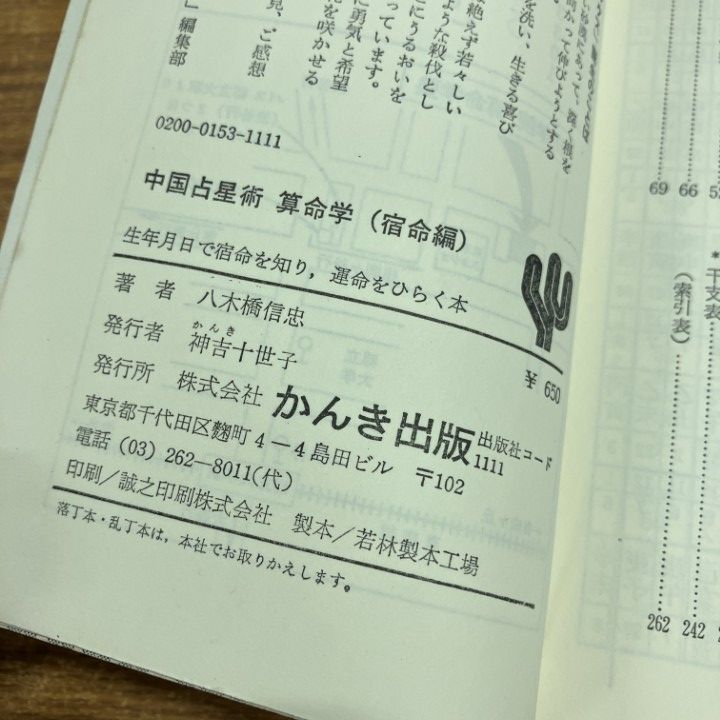 を洗い、生きる喜び
絶えず若々しい
ような殺伐とし
にうるおいを
っています。
に勇気と希望
を咲かせる
見、ご感想
」編集部
0200-0153-1111
中国占星術 算命学（宿命編）
生年月日で宿命を知り，運命をひらく本
¥ 650
著者 八木橋信忠
かんき
発行者 神吉十世子
発行所 株式会社 かんき出版 出版社コード 1111
東京都千代田区麴町4－4島田ビル 〒102
電話 (03) 262－8011(代)
印刷／誠之印刷株式会社 製本／若林製本工場
落丁本・乱丁本は，本社でお取りかえします。
69
66
*干支表
(索引表)
262
242